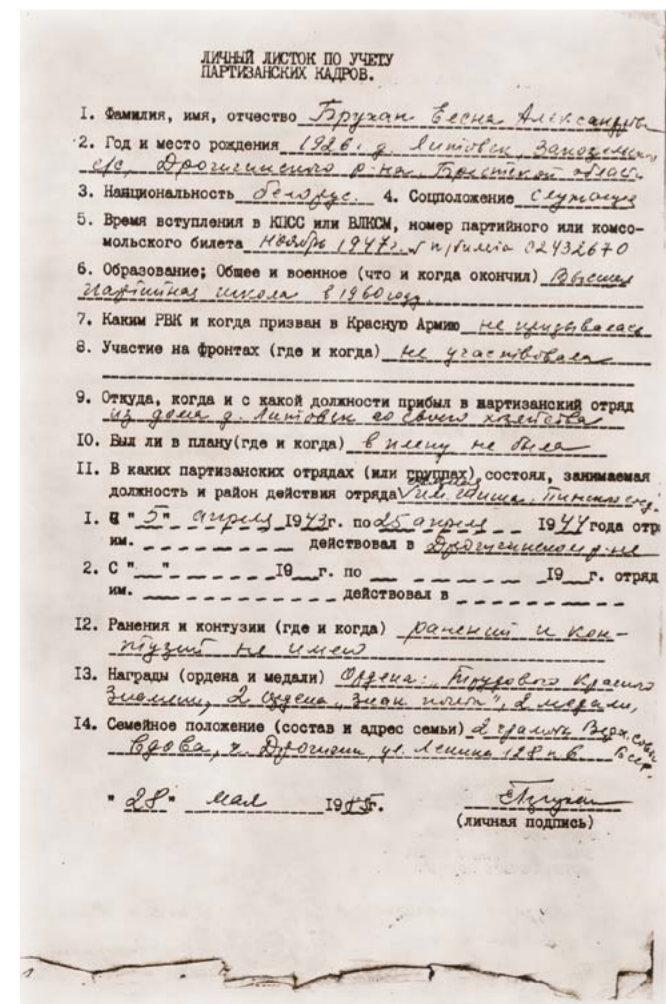 ЛИЧНЫЙ ЛИСТОК ПО УЧЕТУ
ПАРТИЗАНСКИХ КАДРОВ.
I. Фамилия, имя, отчество Брухан Александровна
2. Год и место рождения 1926 г. д. Литовск,
с/с, Дрогичинского р-на Брестской области
3. Национальность белорус. 4. Соцположение служащая
5. Время вступления в КПСС или ВЛКСМ, номер партийного или комсо-
мольского билета Ноябрь 1947г. п/билета 02432670
6. Образование; Общее и военное (что и когда окончил) Высшая
партийная школа в 1960 году
7. Каким РВК и когда призван в Красную Армию не призывалась
8. Участие на фронтах (где и когда) не участвовала
9. Откуда, когда и с какой должности прибыл в партизанский отряд
из дома д. Литовск со своего хозяйства
IO. Был ли в плену(где и когда) в плену не была
II. В каких партизанских отрядах (или группах) состоял, занимаемая
должность и район действия отряда им.
I. С "5" апреля 1943г. по 25 апреля 1944 года отр
им. действовал в Дрогичинском р-не
2. С " " 19 г. по 19 г. отряд
им. действовал в
I2. Ранения и контузии (где и когда) ранений и кон-
тузий не имею
I3. Награды (ордена и медали) Ордена: "Трудового Красного
Знамени, 2 ордена "Знак почета", 2 медали,
I4. Семейное положение (состав и адрес семьи) 2 грамоты Верх.
Вдова, г. Дрогичин, ул. Ленина 128 к 6
"28" мая 1985г.
(личная подпись)